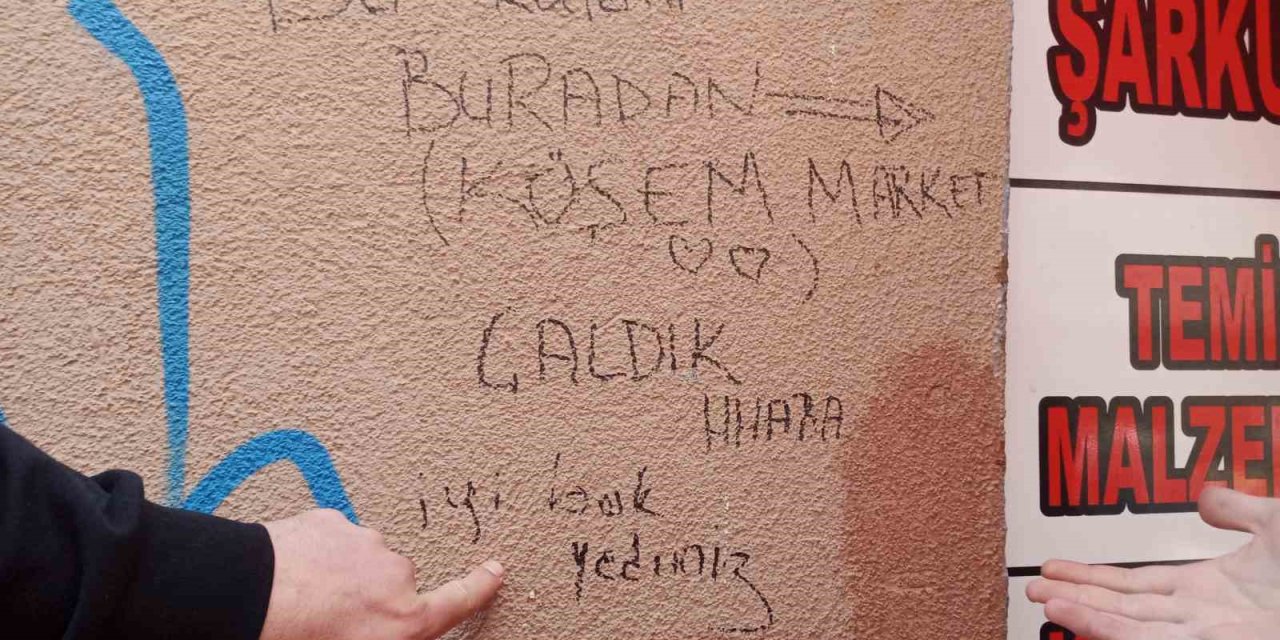 BURADAN
(KÖŞEM MARKET
♡♡)
ÇALDIK
iyi bak
yediniz
ŞARKÜ
TEMİ
MALZE